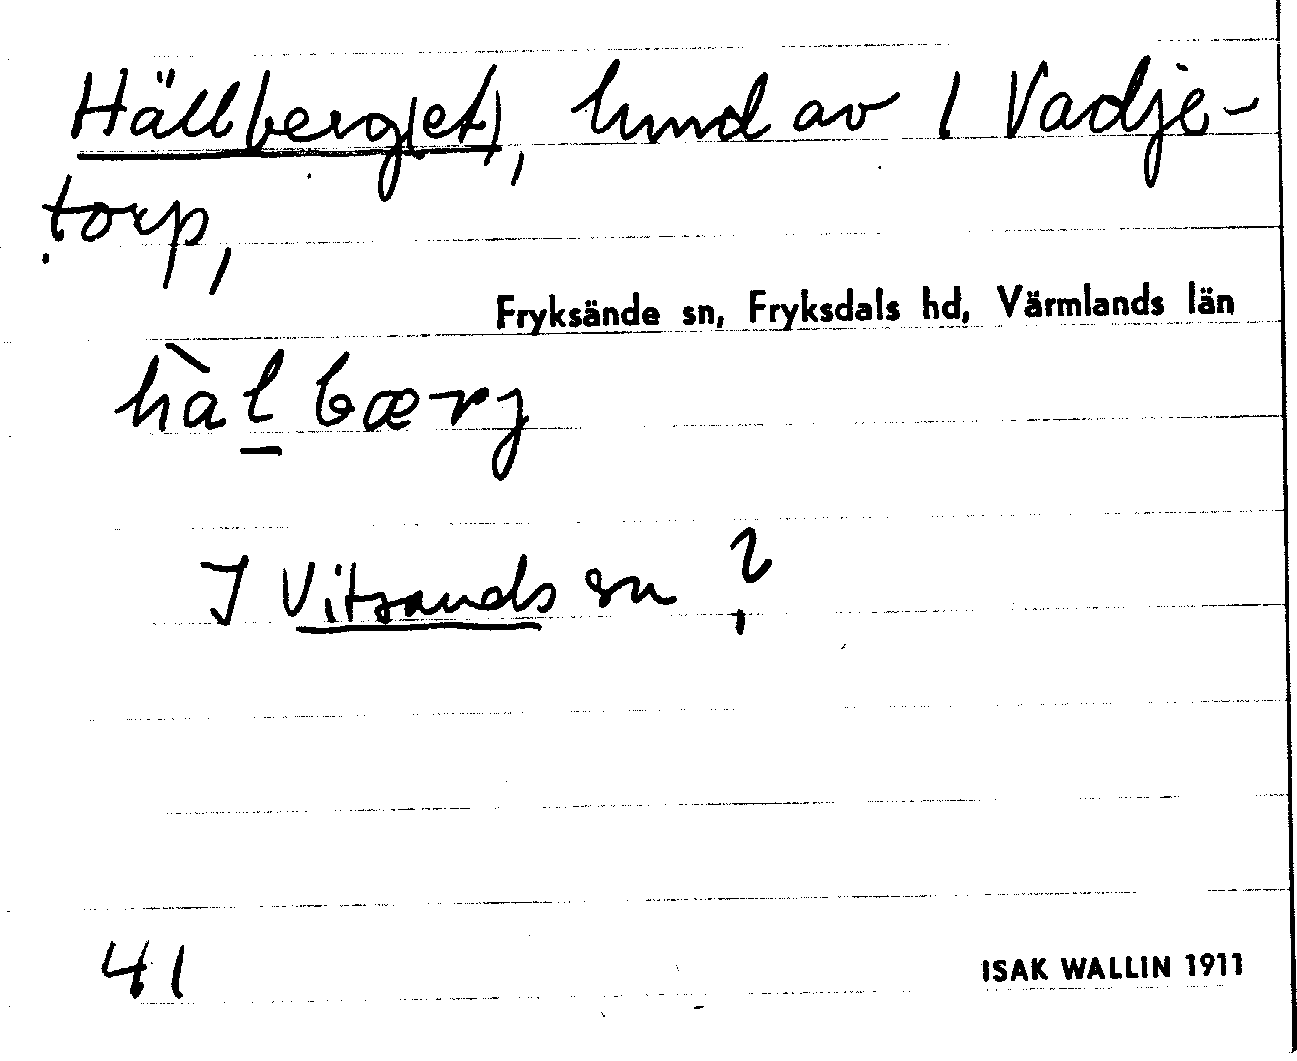 Hällberg(et), lund av 1 Vadje-
torp,
Fryksände sn, Fryksdals hd, Värmlands län
hàl̲bærj
I Vitsands sn ?
41
ISAK WALLIN 1911